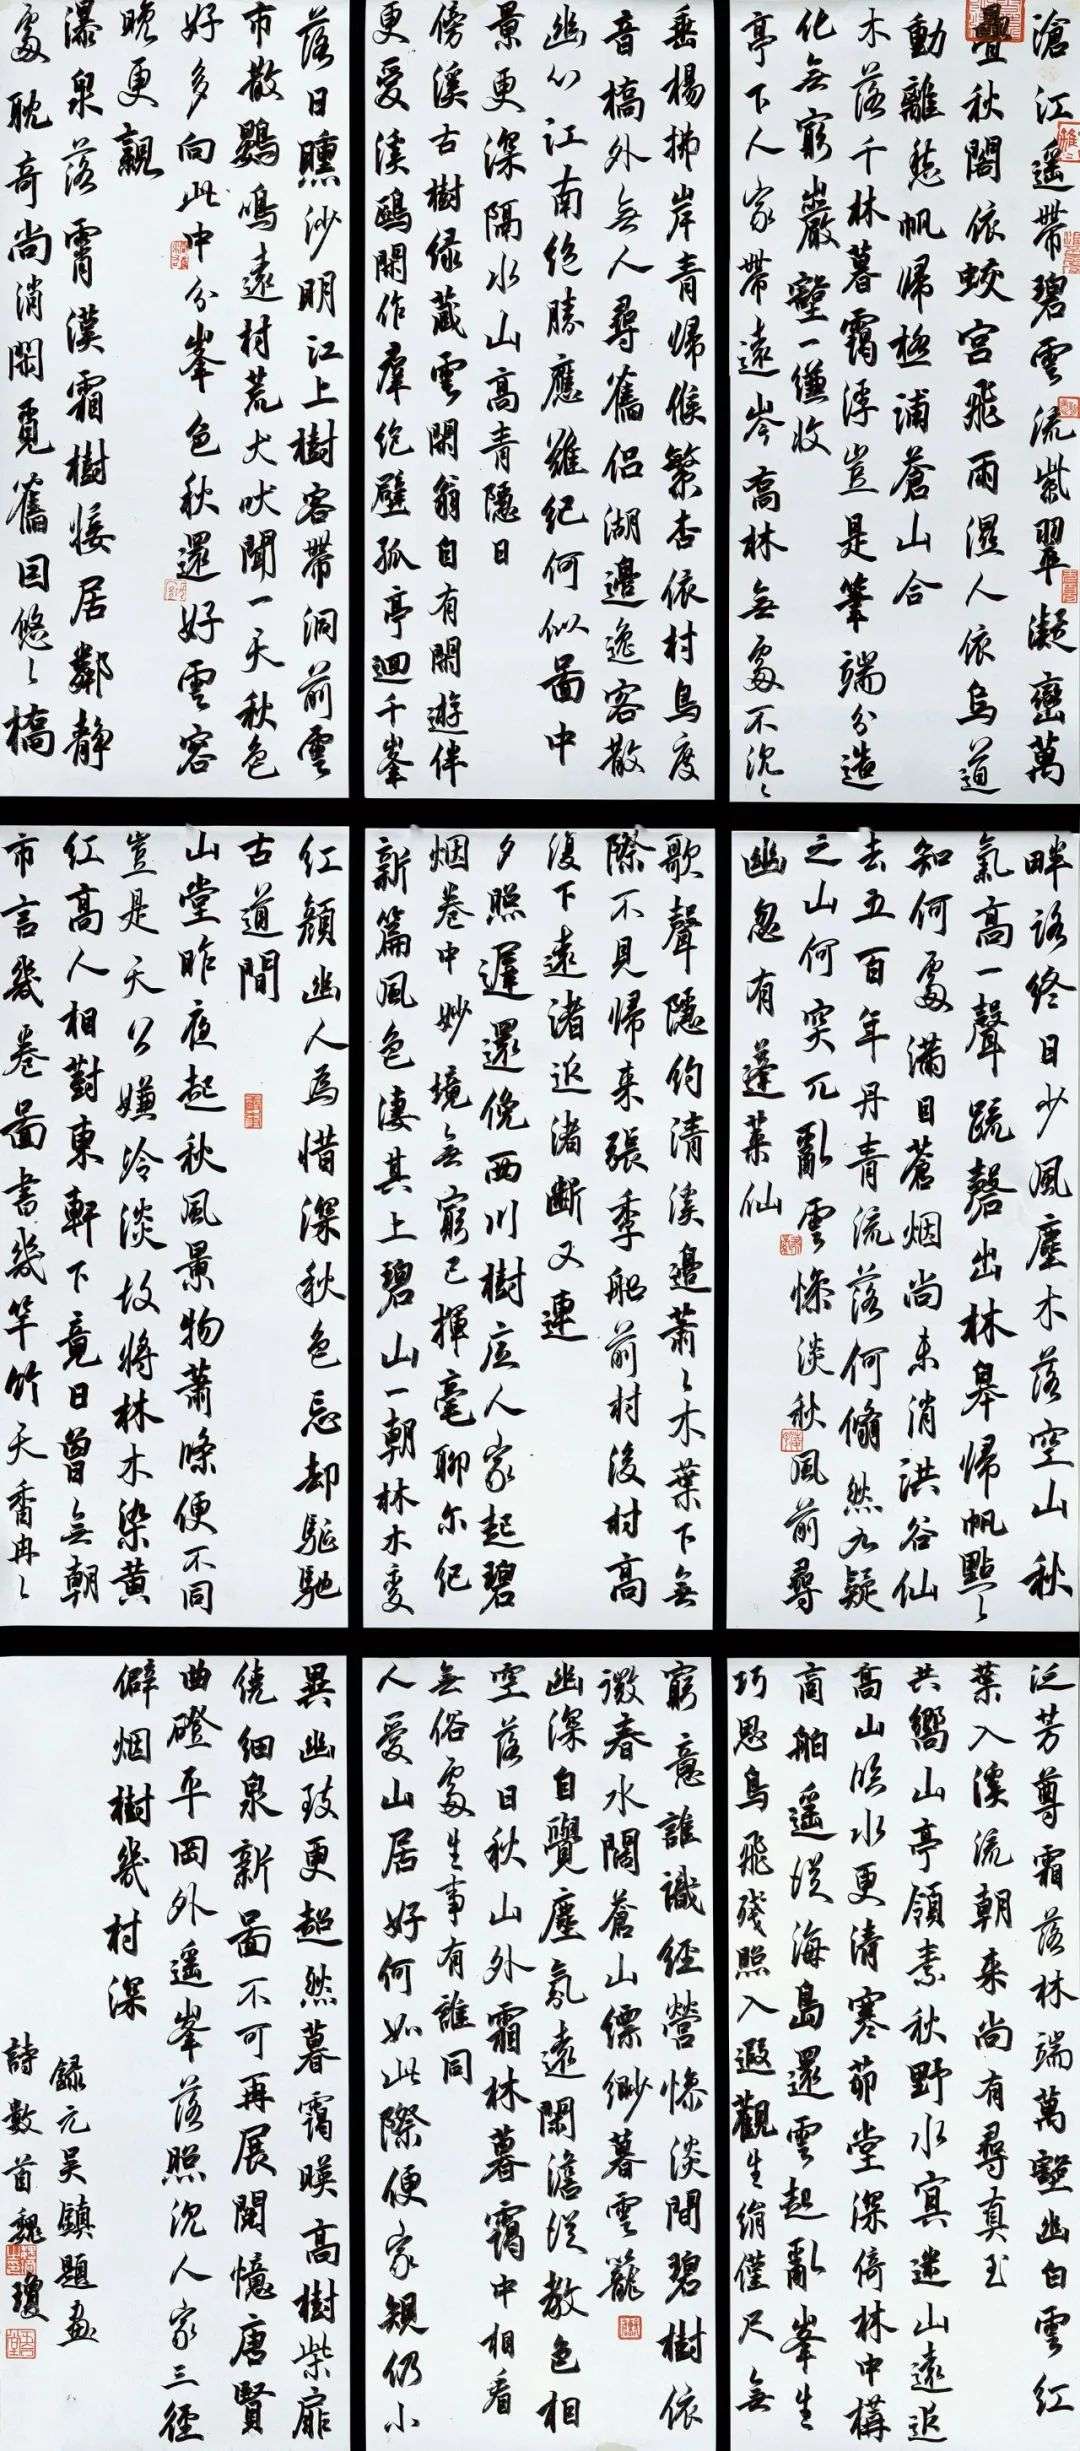 滄江遥帶碧雲流紫翠凝巒萬
疊秋閣依蛟宮飛雨濕人依鳥道
動離愁帆歸極浦蒼山合
木落千林暮靄浮豈是筆端分造
化無窮巖壑一縑收
亭下人家帶遠岑喬林無處不沉〻
垂楊拂岸青歸候繁杏依村鳥度
音橋外無人尋舊侣湖邊逸客散
幽心江南絶勝應難紀何似圖中
景更深隔水山高青隱日
傍溪古樹緑藏雲閑翁自有閑遊伴
更愛溪鷗閑作羣絶壁孤亭迴千峯
落日曛沙明江上樹客帶洞前雲
市散鵶鳴遠村荒犬吠聞一天秋色
好多向此中分峯色秋還好雲容
晚更親
瀑泉落霄漢霜樹接居鄰静
處耽奇尚消閑覓舊因悠〻橋
畔路終日少風塵木落空山秋
氣高一聲疏磬出林皋歸帆點〻
知何處滿目蒼烟尚未消洪谷仙
去五百年丹青流落何翛然九疑
之山何突兀亂雲慘淡秋風前尋
幽忽有蓬萊仙
歌聲隱約清溪邊蕭〻木葉下無
際不見歸来張季船前村後村高
復下遠渚近渚斷又連
夕照遲還俛西川樹底人家起碧
烟卷中妙境無窮已揮毫聊尔紀
新篇風色凄其上碧山一朝林木變
紅顔幽人爲惜深秋色忘却驅馳
古道間
山堂昨夜起秋風景物蕭條便不同
豈是天公嫌冷淡故將林木染黄
紅高人相對東軒下竟日曾無朝
市言幾卷圖書幾竿竹天香冉〻
泛芳尊霜落林端萬壑幽白雲紅
葉入溪流朝来尚有尋真至
共嚮山亭領素秋野水寅迷山遠近
高山照水更清寒茆堂深倚林中構
商舶遥從海島還雲起亂峯生
巧思鳥飛殘照入遐觀生綃僅尺無
窮意誰識經營慘淡間碧樹依
微春水闊蒼山縹緲暮雲籠
幽深自覺塵氛遠閑澹從教色相
空落日秋山外霜林暮靄中相看
無俗處生事有誰同
人愛山居好何如此際便家規仍小
異幽致更超然暮靄暎高樹柴扉
繞細泉新圖不可再展閲憶唐賢
曲磴平岡外遥峯落照沉人家三徑
僻烟樹幾村深
録元吴鎮題画
詩數首魏瓊